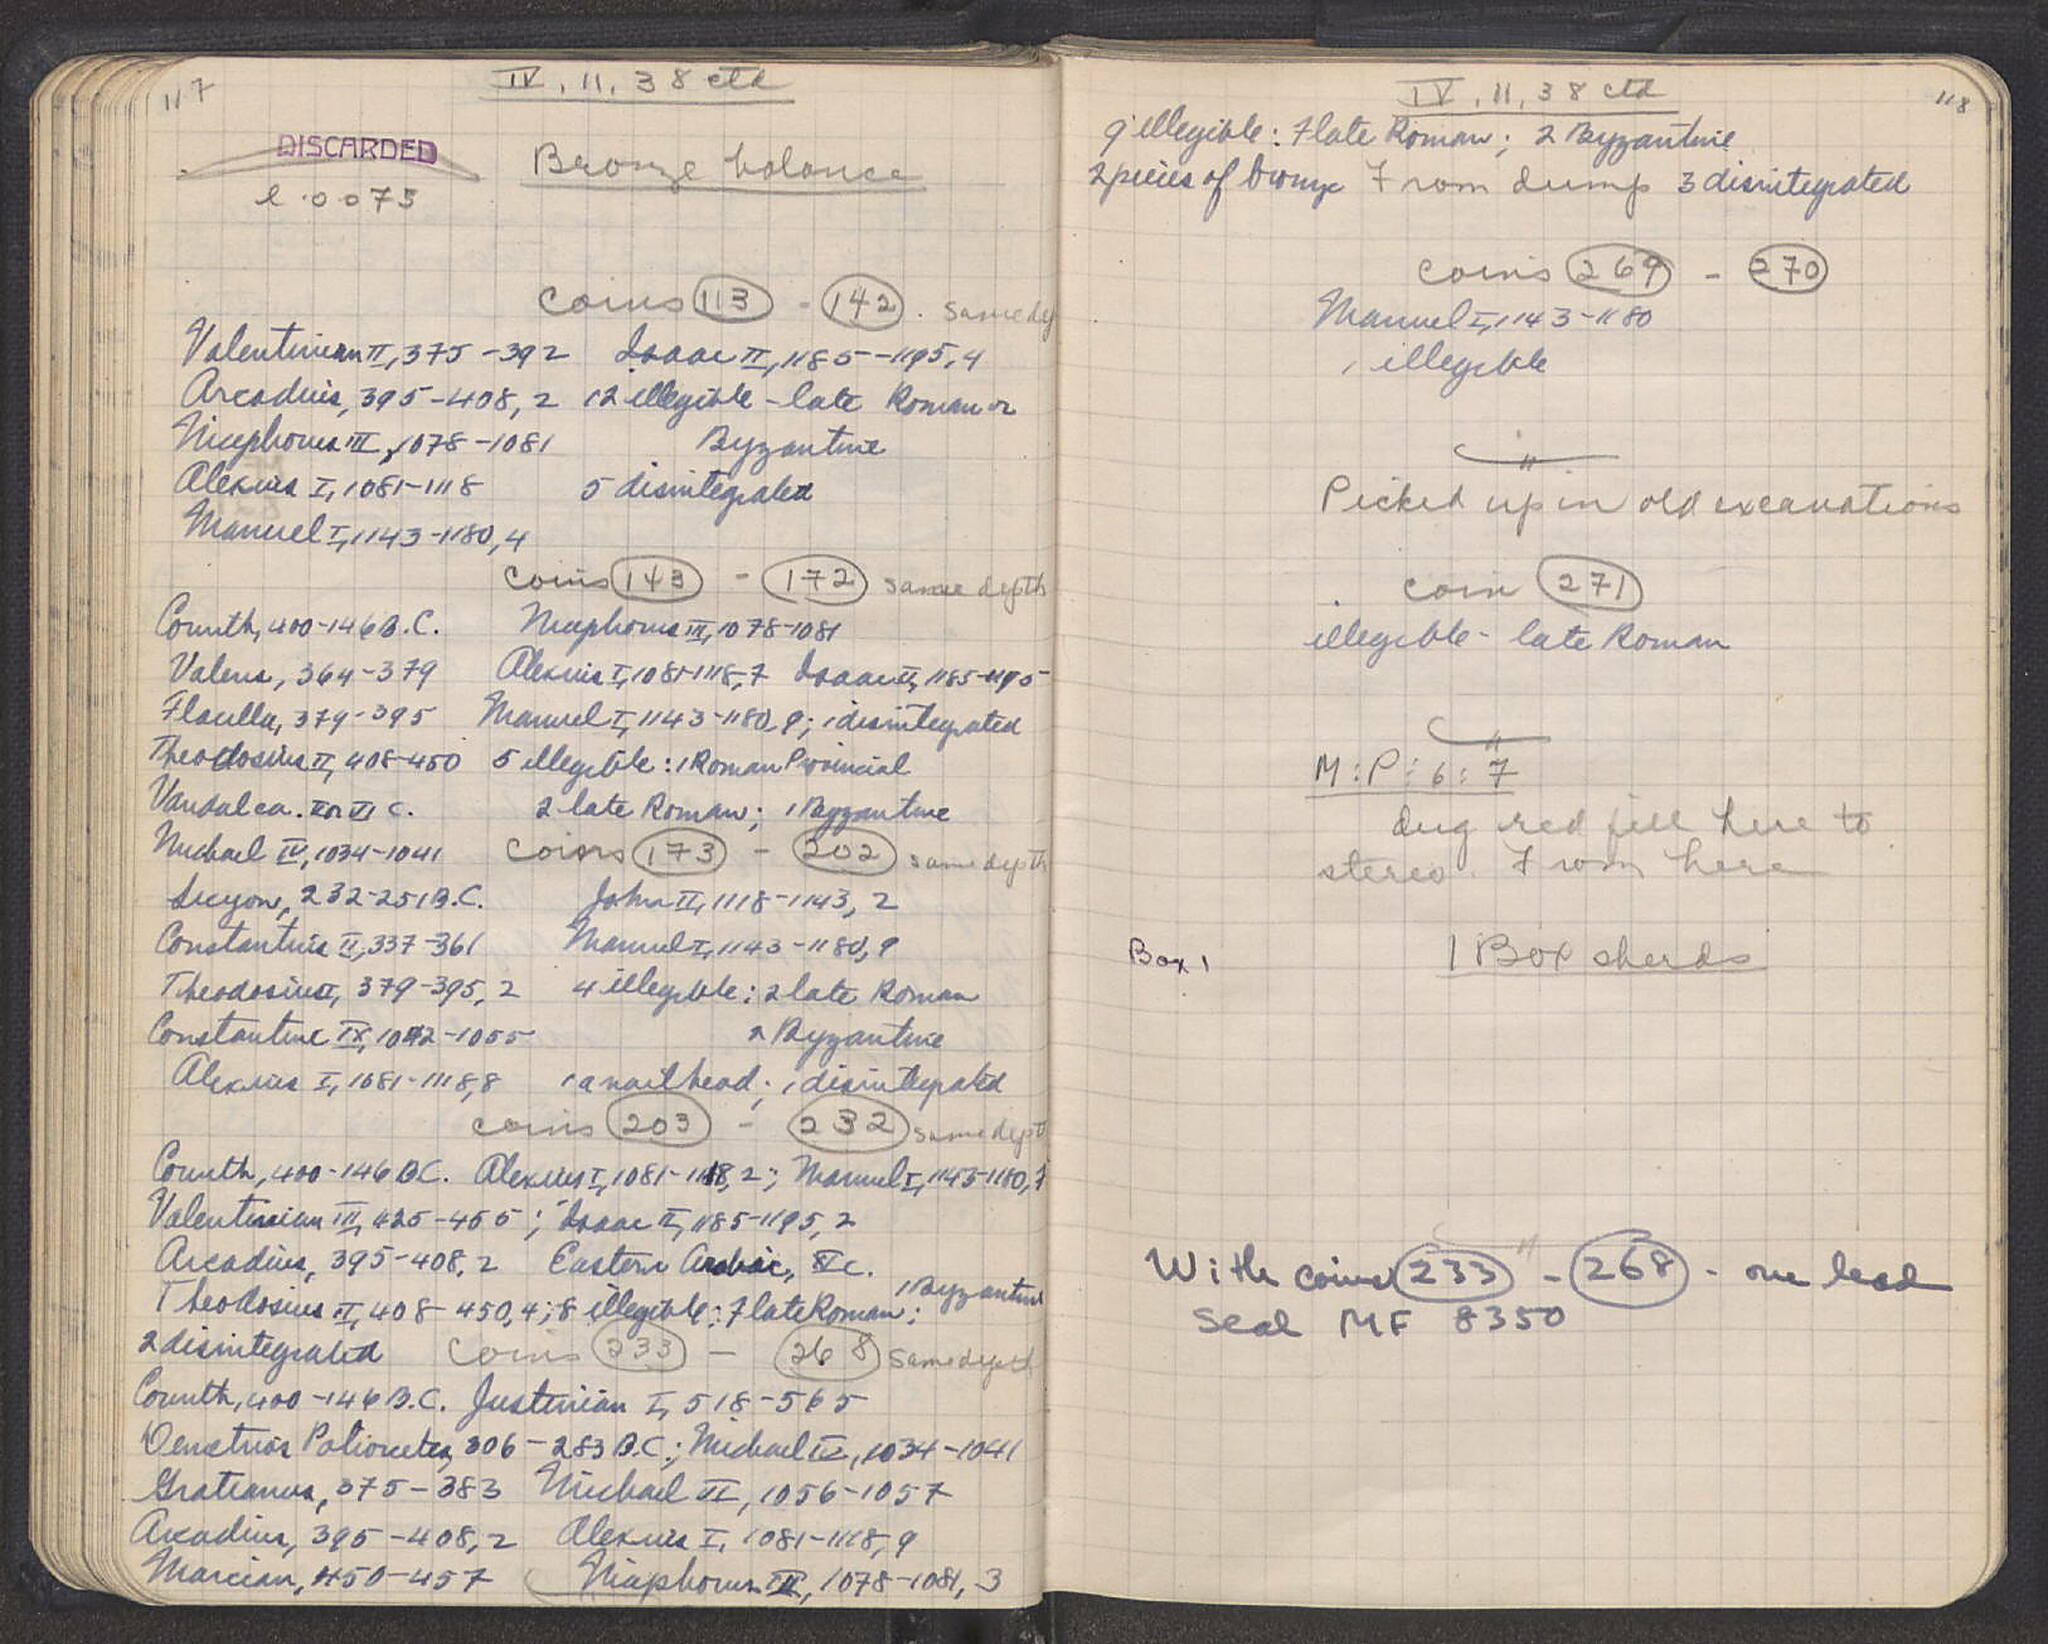 117
IV, 11, 38 ctd
DISCARDED
Bronze balance
l. 0.073
coins 113 - 142. same
Valentinian II, 375-392 Isaac II, 1185-1195, 4
Arcadius, 395-408, 2 12 illegible - late Roman or
Nicephorus III, 1078-1081 Byzantine
Alexius I, 1081-1118 5 disintegrated
Manuel I, 1143-1180, 4
coins 143 - 172 same depth
Corinth, 400-146 B.C. Nicephorus III, 1078-1081
Valens, 364-379 Alexius I, 1081-1118, 7 Isaac II, 1185-1195
Flacilla, 379-395 Manuel I, 1143-1180, 9; 1 disintegrated
Theodosius II, 408-450 5 illegible: 1 Roman Provincial
Vandal ca. V or VI c. 2 late Roman; 1 Byzantine
Michael IV, 1034-1041 coins 173 - 202 same depth
Sicyon, 232-251 B.C. John II, 1118-1143, 2
Constantius II, 337-361 Manuel I, 1143-1180, 9
Theodosius I, 379-395, 2 4 illegible: 2 late Roman
Constantine IX, 1042-1055 2 Byzantine
Alexius I, 1081-1118, 8 1 a nail head; 1 disintegrated
coins 203 - 232 same dept
Corinth, 400-146 B.C. Alexius I, 1081-1118, 2; Manuel I, 1143-1180, 7
Valentinian III, 425-455; Isaac II, 1185-1195, 2
Arcadius, 395-408, 2 Eastern Arabic, c.
1 Byzantine
Theodosius II, 408-450, 4; 8 illegible: 7 late Roman;
2 disintegrated coins 233 - 268 same depth
Corinth, 400-146 B.C. Justinian I, 518-565
Demetrios Poliorcetes, 306-283 B.C.; Michael IV, 1034-1041
Gratianus, 375-383 Michael VI, 1056-1057
Arcadius, 395-408, 2 Alexius I, 1081-1118, 9
Marcian, 450-457 Nicephorus III, 1078-1081, 3
118
IV, 11, 38 ctd
9 illegible: 7 late Roman; 2 Byzantine
2 pieces of bronze From dump 3 disintegrated
coins 269 - 270
Manuel I, 1143-1180
1 illegible
"
Picked up in old excavations
coin 271
illegible - late Roman
"
M:P:6:7
dug red fill here to
stereo. From here
Box 1 1 Box sherds
"
With coins 233 - 268 - one lead
seal MF 8350